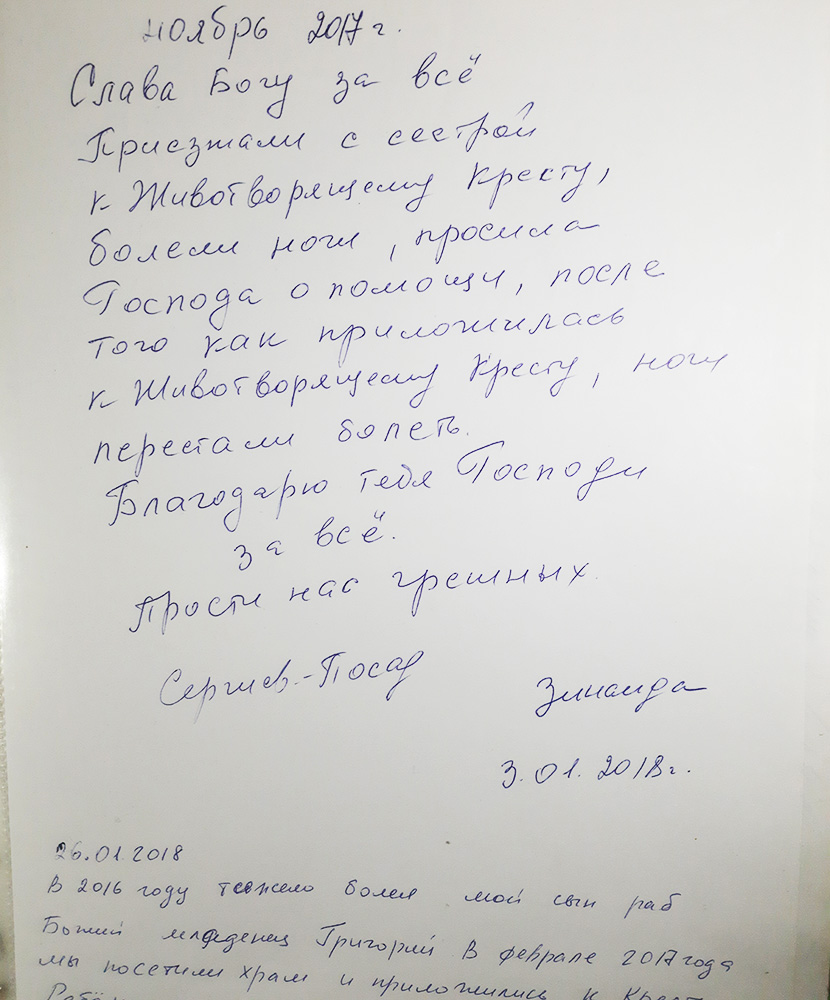 ноябрь 2017 г.
Слава Богу за всё
Приезжали с сестрой
к Животворящему Кресту,
болели ноги, просила
Господа о помощи, после
того как приложилась
к Животворящему Кресту, ноги
перестали болеть.
Благодарю тебя Господи
за всё.
Прости нас грешных.
Сергиев-Посад
Зинаида
3.01.2018г.
26.01.2018
В 2016 году тяжело болел мой сын раб
Божий младенец Григорий В феврале 2017 года
мы посетили храм и приложились к Кресту